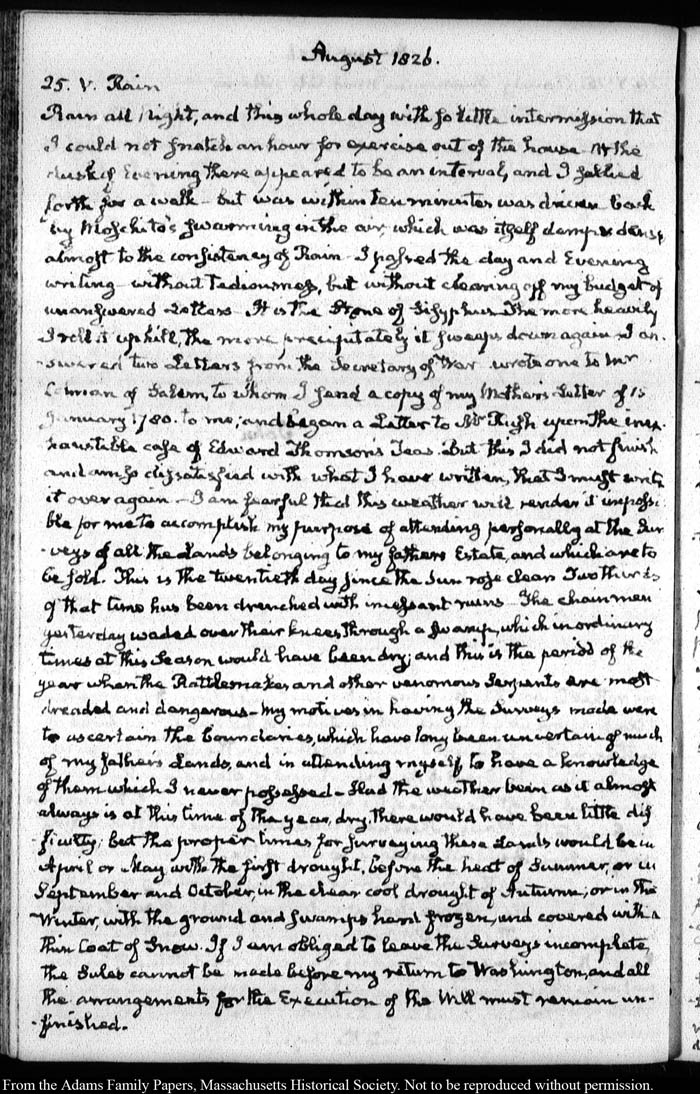 August 1826.
25. V. Rain
Rain all Night, and this whole day with so little intermission that
I could not snatch an hour for exercise out of the house. At the
dusk of Evening there appeared to be an interval, and I sallied
forth for a walk — but was within ten minutes was driven back
by Moschito's swarming in the air, which was itself damp & dense
almost to the consistency of Rain — I passed the day and Evening
writing without tediousness, but without clearing off my budget of
unanswered Letters — It is the Stone of Sisyphus — The more heavily
I roll it up hill, the more precipitately it sweeps down again — I an-
-swered two Letters from the Secretary of War — wrote one to Mr
of Salem, to whom I send a copy of my Mother's Letter of 15
January 1780. to me; and began a Letter to Mr Rush upon the inex-
haustible case of Edward Thomson's Teas. But this I did not finish
and am so dissatisfied with what I have written, that I must write
it over again — I am fearful that this weather will render it impossi-
ble for me to accomplish my purpose of attending personally at the Sur-
-veys of all the Lands belonging to my father's Estate, and which are to
be sold. This is the twentieth day since the Sun rose clear. Two thirds
of that time has been drenched with incessant rains — The chain men
yesterday waded over their knees through a swamp, which in ordinary
times at this Season would have been dry; and this is the period of the
year when the Rattlesnakes and other venomous Serpents are most
dreaded and dangerous — My motives in having the Surveys made were
to ascertain the boundaries, which have long been uncertain of much
of my father's Lands, and in attending myself to have a knowledge
of them which I never possessed — Had the weather been as it almost
always is at this time of the year, dry, there would have been little dif-
-ficulty; but the proper times for surveying these Lands would be in
April or May with the first drought, before the heat of Summer, or in
September and October, in the clear cool drought of Autumn; or in the
Winter, with the ground and swamps hard frozen, and covered with a
thin Coat of Snow. If I am obliged to leave the Surveys incomplete,
the Sales cannot be made before my return to Washington, and all
the arrangements for the Execution of the Will must remain un-
-finished.
From the Adams Family Papers, Massachusetts Historical Society. Not to be reproduced without permission.